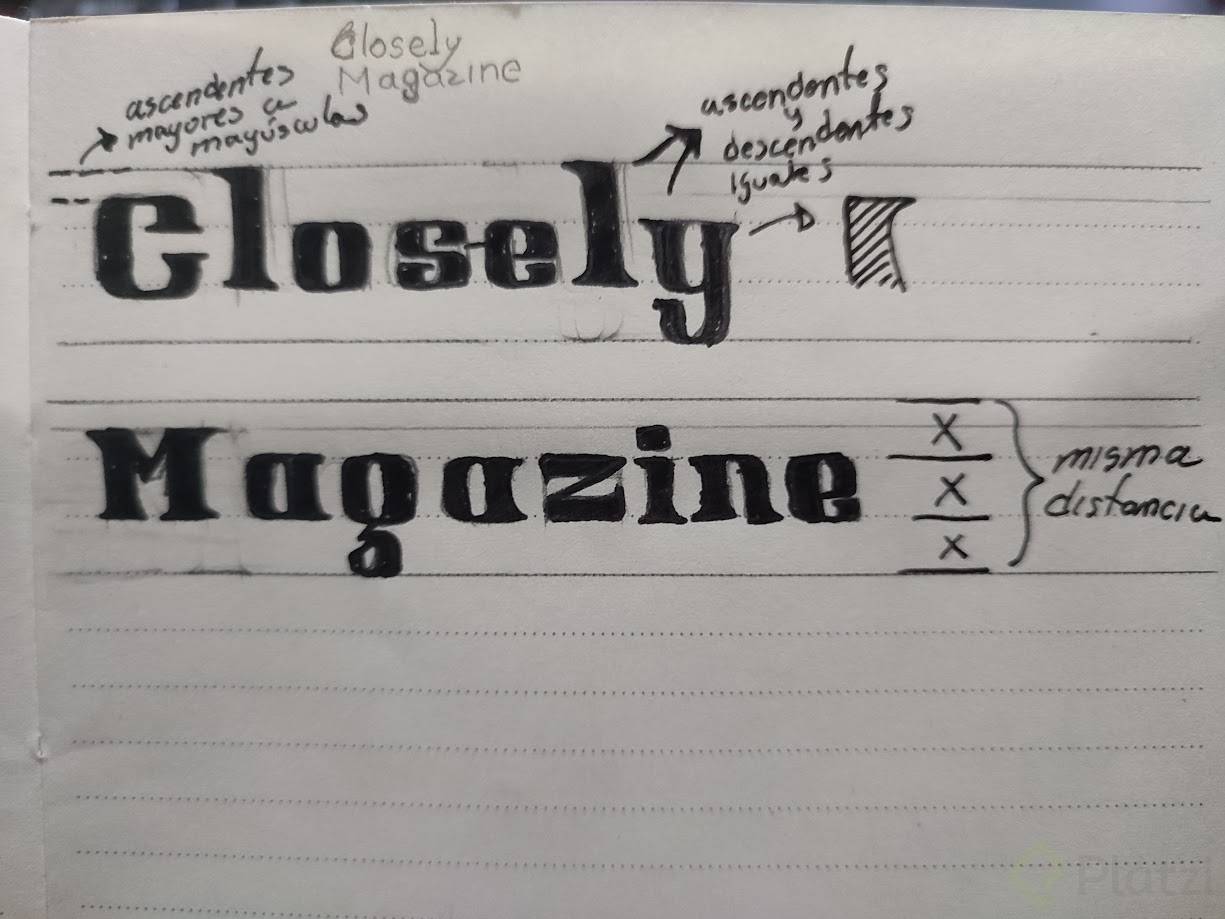 Closely
Magazine
ascendentes
mayores a
mayúsculas
ascendentes
y
descendentes
iguales
Closely
Magazine
X
X
X
misma
distancia
Platzi